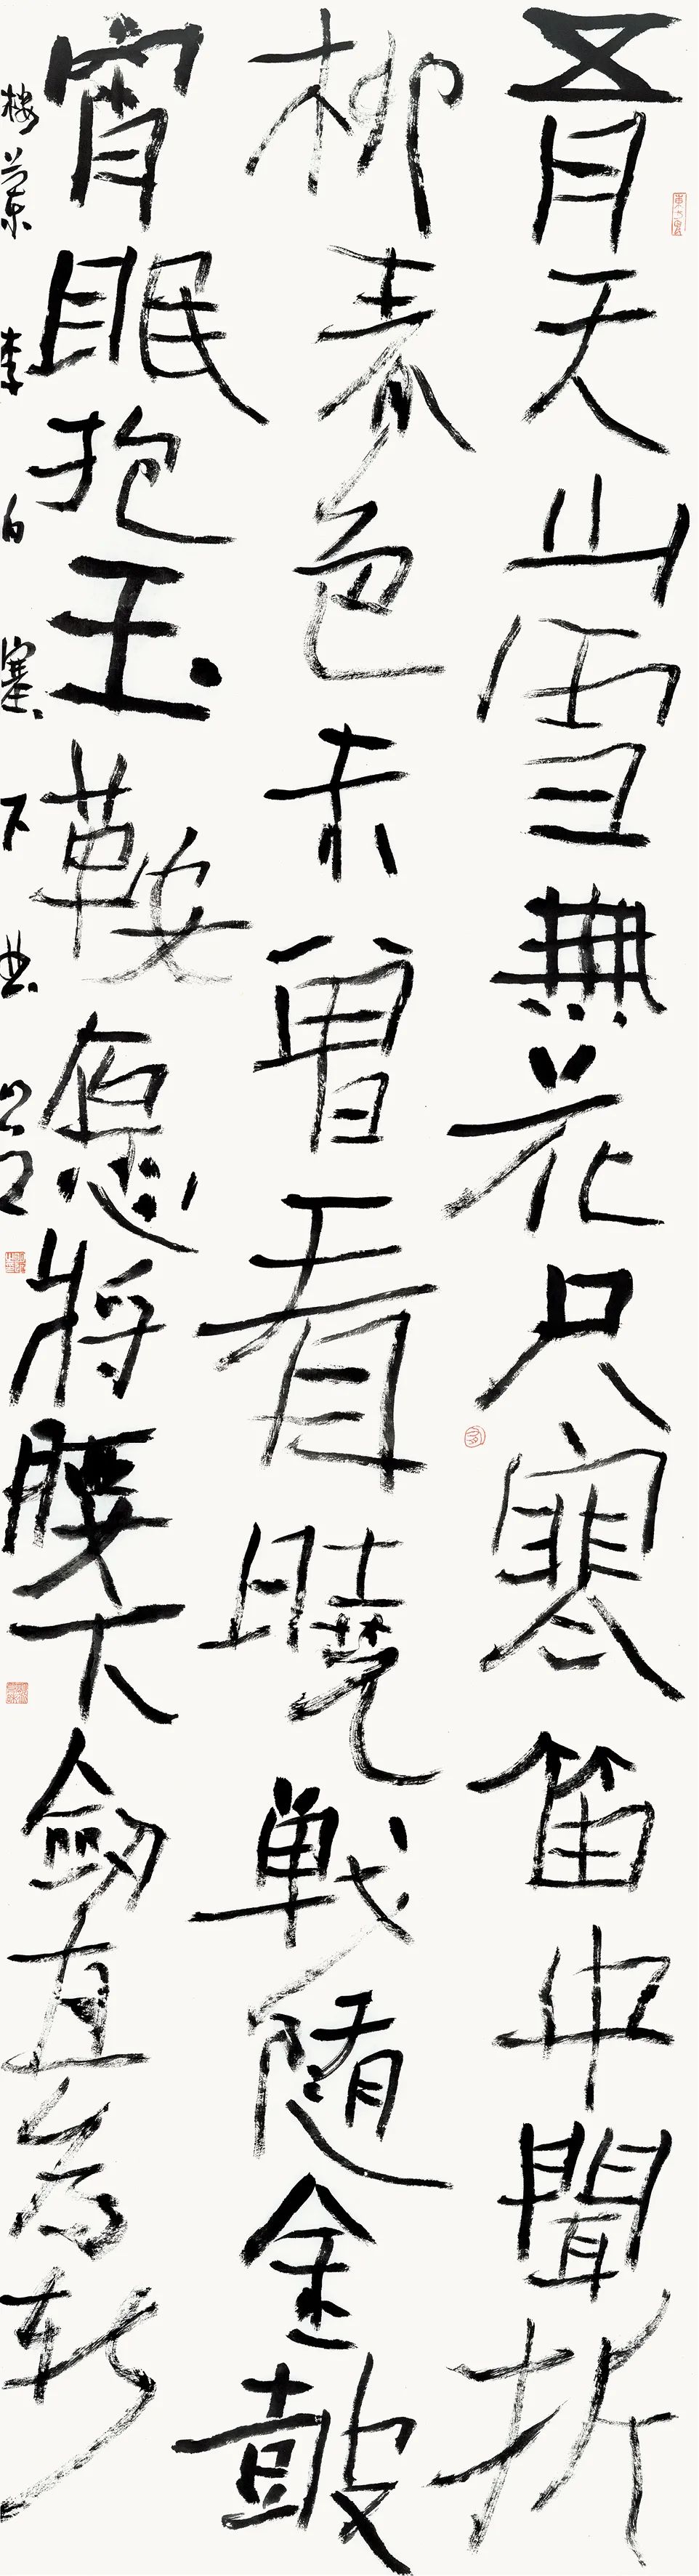 五月天山雪無花只寒笛中聞折
柳春色未曾看曉戰随金鼓
宵眠抱玉鞍愿將腰下劍直為斬
楼蘭李白塞下曲